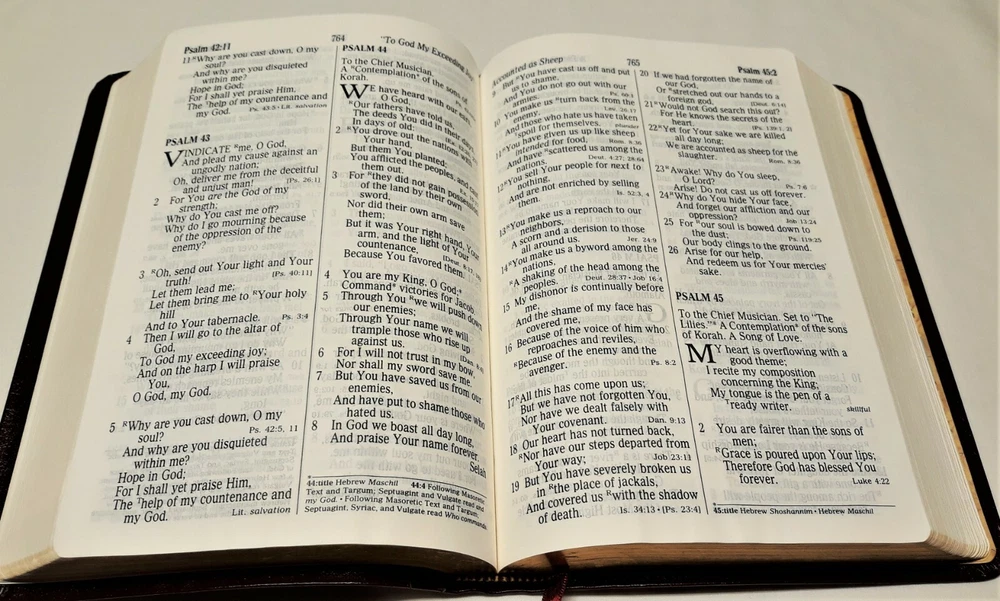 Psalm 42:11
764
"To God My Exceeding
11 ᴿWhy are you cast down, O my
soul?
And why are you disquieted
within me?
Hope in God;
For I shall yet praise Him,
The ᵀhelp of my countenance and
my God.
Ps. 43:5 • Lit. salvation
PSALM 43
VINDICATE ᴿme, O God,
And plead my cause against an
ungodly nation;
Oh, deliver me from the deceitful
and unjust man!
[Ps. 26:1]
2 For You are the God of my
strength;
Why do You cast me off?
Why do I go mourning because
of the oppression of the
enemy?
3 ᴿOh, send out Your light and Your
truth!
[Ps. 40:11]
Let them lead me;
Let them bring me to ᴿYour holy
hill
And to Your tabernacle.
Ps. 3:4
4 Then I will go to the altar of
God,
To God my exceeding joy;
And on the harp I will praise
You,
O God, my God.
5 ᴿWhy are you cast down, O my
soul?
Ps. 42:5, 11
And why are you disquieted
within me?
Hope in God;
For I shall yet praise Him,
The ᵀhelp of my countenance and
my God.
Lit. salvation
PSALM 44
To the Chief Musician.
A ᴿContemplation* of the sons of
Korah.
WE have heard with our ears,
O God,
ᴿOur fathers have told us,
The deeds You did in their
In days of old:
2 ᴿYou drove out the nations with
Your hand,
But them You planted;
You afflicted the peoples, and
them out.
3 For ᴿthey did not gain
of the land by their own
sword,
Nor did their own arm save
them;
But it was Your right hand, Your
arm, and the light of Your
countenance,
Because You favored them.
[Deut. 8:17,
4 You are my King, O God;*
Command* victories for Jacob.
5 Through You ᴿwe will push down
our enemies;
Through Your name we will
trample those who rise up
against us.
[Dan. 8:4]
6 For I will not trust in my bow,
Nor shall my sword save me.
7 But You have saved us from our
enemies,
And have put to shame those who
hated us.
8 In God we boast all day long,
And praise Your name forever.
Selah
44:title Hebrew Maschil 44:4 Following Masoretic
Text and Targum; Septuagint and Vulgate read and
my God. • Following Masoretic Text and Targum;
Septuagint, Syriac, and Vulgate read Who commands.
Accounted as Sheep
765
Psalm 45:2
But ᴿYou have cast us off and put
us to shame,
And You do not go out with our
armies.
Ps. 60:1
10 You make us ᴿturn back from the
enemy,
Lev. 26:17
And those who hate us have taken
spoil for themselves.
11 ᴿYou have given us up like sheep
intended for food,
Rom. 8:36
And have ᴿscattered us among the
nations.
Deut. 4:27; 28:64
12 ᴿYou sell Your people for next to
nothing,
And are not enriched by selling
them.
Is. 52:3, 4
13 ᴿYou make us a reproach to our
neighbors,
A scorn and a derision to those
all around us.
Jer. 24:9
14 ᴿYou make us a byword among the
nations,
ᴿA shaking of the head among the
peoples.
Deut. 28:37 • Job 16:4
15 My dishonor is continually before
me,
And the shame of my face has
covered me,
16 Because of the voice of him who
reproaches and reviles,
ᴿBecause of the enemy and the
avenger.
Ps. 8:2
17 ᴿAll this has come upon us;
But we have not forgotten You,
Nor have we dealt falsely with
Your covenant.
Dan. 9:13
18 Our heart has not turned back,
ᴿNor have our steps departed from
Your way;
Job 23:11
19 But You have severely broken us
in ᴿthe place of jackals,
And covered us ᴿwith the shadow
of death.
Is. 34:13 • [Ps. 23:4]
20 If we had forgotten the name of
our God,
Or ᴿstretched out our hands to a
foreign god,
[Deut. 6:14]
21 ᴿWould not God search this out?
For He knows the secrets of the
heart.
[Ps. 139:1, 2]
22 ᴿYet for Your sake we are killed
all day long;
We are accounted as sheep for the
slaughter.
Rom. 8:36
23 ᴿAwake! Why do You sleep,
O Lord?
Ps. 7:6
Arise! Do not cast us off forever.
24 ᴿWhy do You hide Your face,
And forget our affliction and our
oppression?
Job 13:24
25 For ᴿour soul is bowed down to
the dust;
Ps. 119:25
Our body clings to the ground.
26 Arise for our help,
And redeem us for Your mercies'
sake.
PSALM 45
To the Chief Musician. Set to ᴿ"The
Lilies."* A Contemplation* of the sons
of Korah. A Song of Love.
MY heart is overflowing with a
good theme;
I recite my composition
concerning the King;
My tongue is the pen of a
ᵀready writer.
skillful
2 You are fairer than the sons of
men;
ᴿGrace is poured upon Your lips;
Therefore God has blessed You
forever.
Luke 4:22
45:title Hebrew Shoshannim • Hebrew Maschil